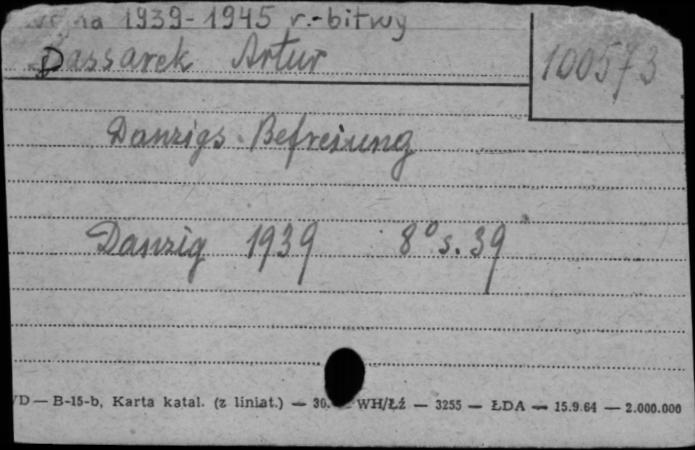 wojna 1939-1945 r.-bitwy
Dassarek Artur
100573
Danzigs Befreiung
Danzig 1939 8° s. 39
/D — B-15-b, Karta katal. (z liniat.) — 30. WH/Łź — 3255 — ŁDA — 15.9.64 — 2.000.000